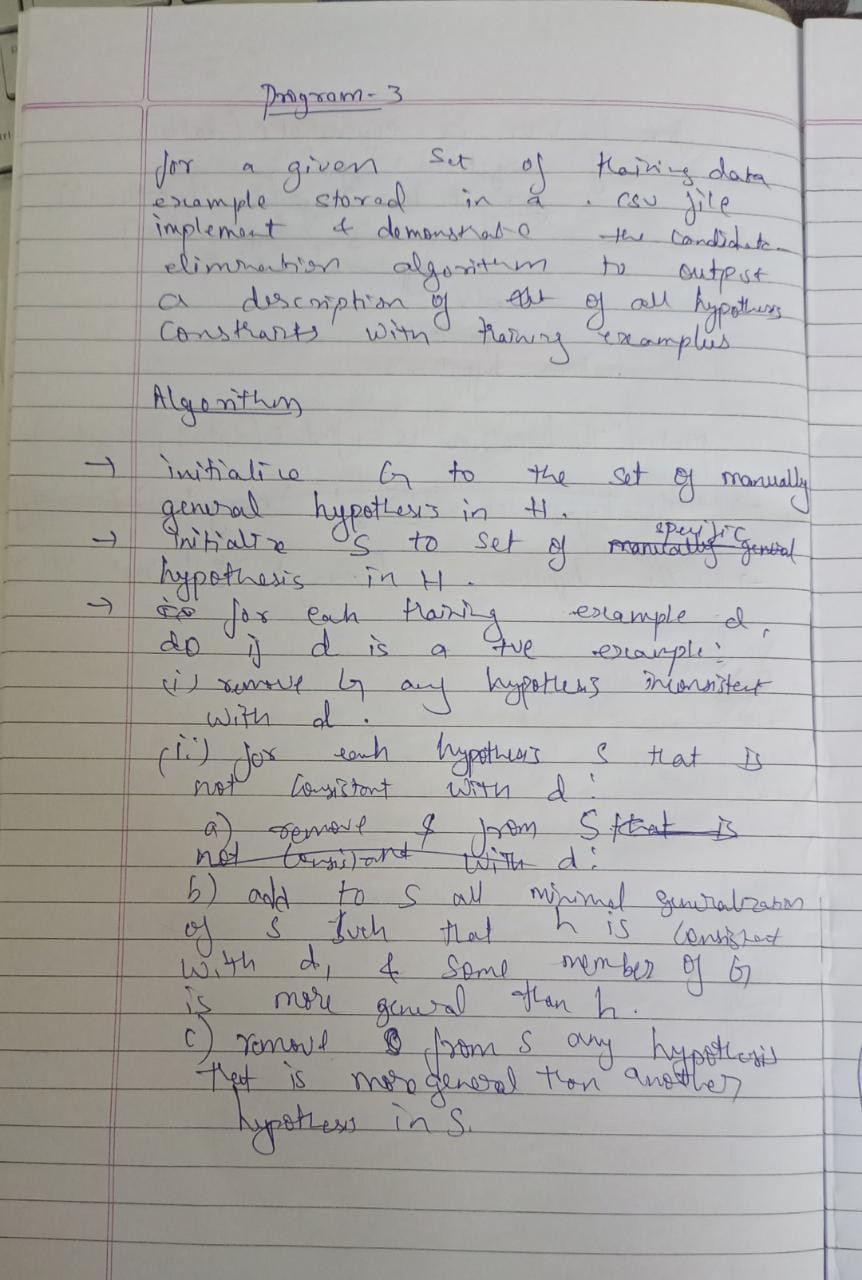 Program - 3
for a given set of training data
example stored in a . csv file
implement & demonstrate the candidate
elimination algorithm to output
a description of of all hypothesis
constraints with training examples
Algorithm
→ initialize G to the set of manually
general hypothesis in H.
→ Initialize S to set of manually general specific
hypothesis in H.
→ for each training example d,
do if d is a +ve example:
(i) remove G any hypothesis inconsistent
with d.
(ii) for each hypothesis S that is
not consistent with d:
a) remove S from S that is
not consistant with d:
b) add to S all minimal generalization
of S such that h is consistent
with d, & some member of G
is more general than h.
c) remove from S any hypothesis
that is more general than another
hypothesis in S.